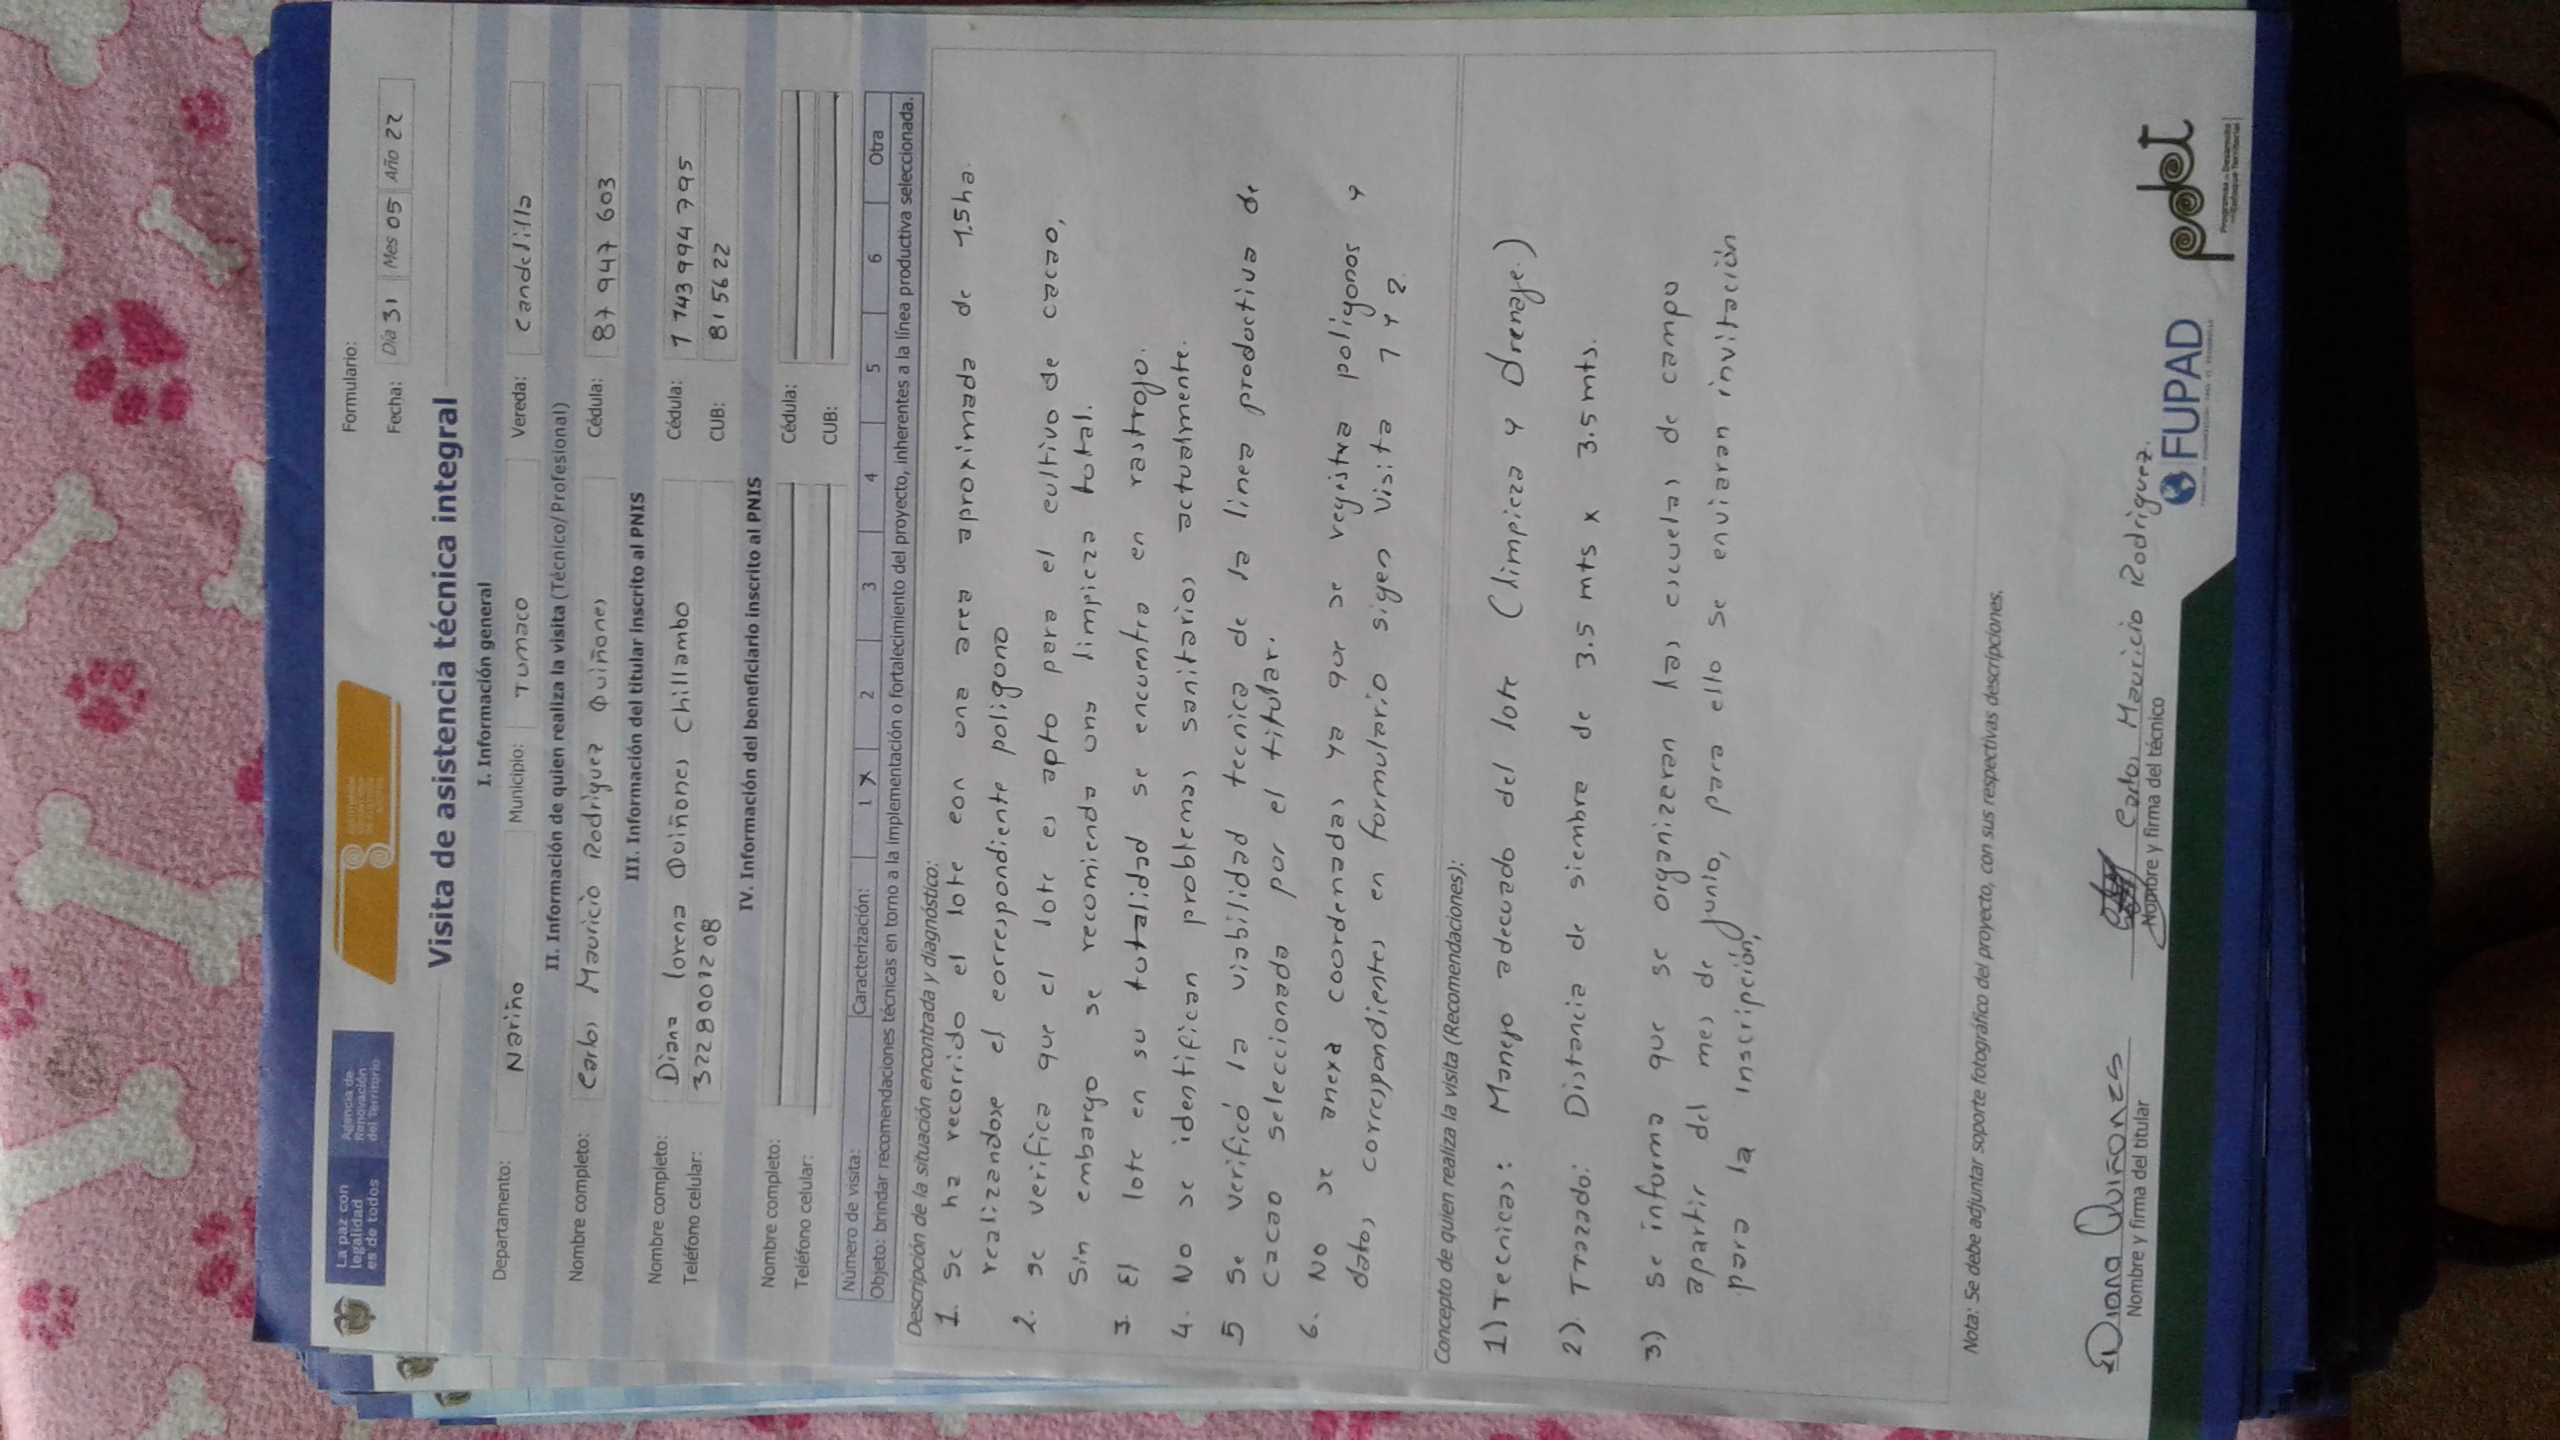 La paz con
legalidad
es de todos
Agencia de
Renovación
del Territorio
Formulario:
Fecha: Día 31 Mes 05 Año 22
Visita de asistencia técnica integral
I. Información general
Departamento: Nariño Municipio: Tumaco Vereda: candelilla
II. Información de quien realiza la visita (Técnico/Profesional)
Nombre completo: Carlos Mauricio Rodriguez Quiñones Cédula: 87 947 603
III. Información del titular inscrito al PNIS
Nombre completo: Diana lorena Quiñones Chillambo Cédula: 1 143 994 795
Teléfono celular: 3228001208 CUB: 815622
IV. Información del beneficiario inscrito al PNIS
Nombre completo: Cédula:
Teléfono celular: CUB:
Número de visita: Caracterización: 1 X 2 3 4 5 6 Otra
Objeto: brindar recomendaciones técnicas en torno a la implementación o fortalecimiento del proyecto, inherentes a la línea productiva seleccionada.
Descripción de la situación encontrada y diagnóstico:
1. Se ha recorrido el lote con una area aproximada de 1.5ha.
realizandose el correspondiente poligono
2. se verifica que el lote es apto para el cultivo de cacao,
Sin embargo se recomienda una limpieza total.
3. El lote en su totalidad se encuentra en rastrojo.
4. No se identifican problemas sanitarios actualmente.
5 Se verificó la viabilidad tecnica de la linea productiva de
Cacao seleccionada por el titular.
6. No se anexa coordenadas ya que se registra poligonos y
datos correspondientes en formulario sigen visita 1 y 2.
Concepto de quien realiza la visita (Recomendaciones):
1) Tecnicas: Manejo adecuado del lote (limpieza y Drenaje.)
2). Trazado: Distancia de siembra de 3.5 mts x 3.5 mts.
3) Se informa que se organizeran las escuelas de campo
apartir del mes de junio, para ello se enviaran invitación
para la inscripción,
Nota: Se debe adjuntar soporte fotográfico del proyecto, con sus respectivas descripciones.
Diana Quiñones
Nombre y firma del titular
Carlos Mauricio Rodriguez.
Nombre y firma del técnico
FUPAD
pdet
Programas de Desarrollo
con Enfoque Territorial